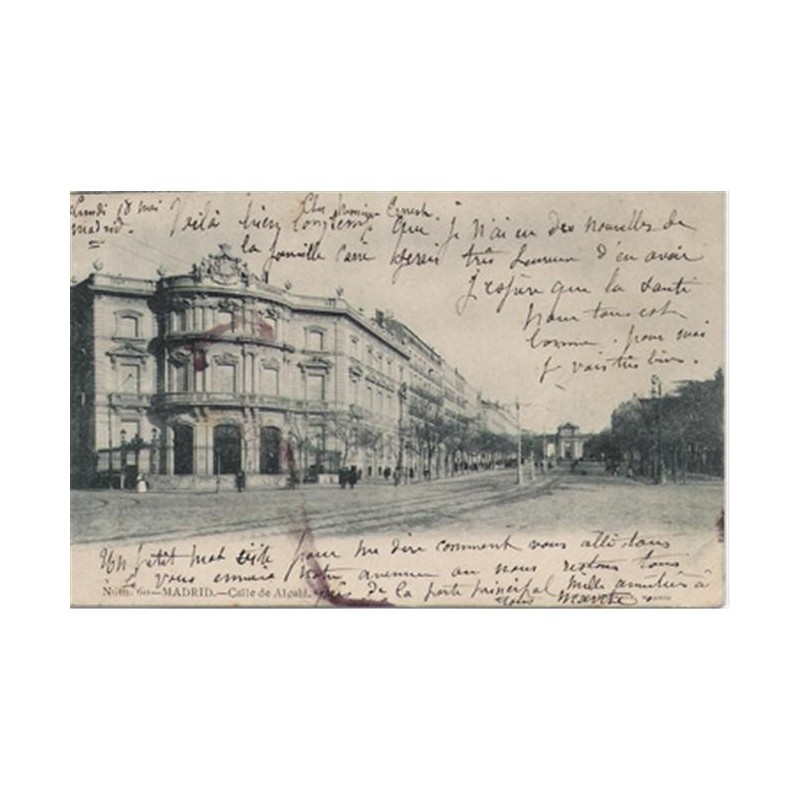 Lundi 18 mai
Madrid.
Cher Monsieur Ernest
Voilà bien longtemps que je n'ai eu des nouvelles de
la famille Carré serais très heureux d'en avoir
J'espère que la santé
pour tous est
bonne. pour moi
je vais très bien.
Un petit mot vite pour me dire comment vous allé tous
Je vous envoie notre avenue ou nous restons tous
près de la porte principal Mille amitiés à
tous
Núm. 60—MADRID.—Calle de Alcalá.